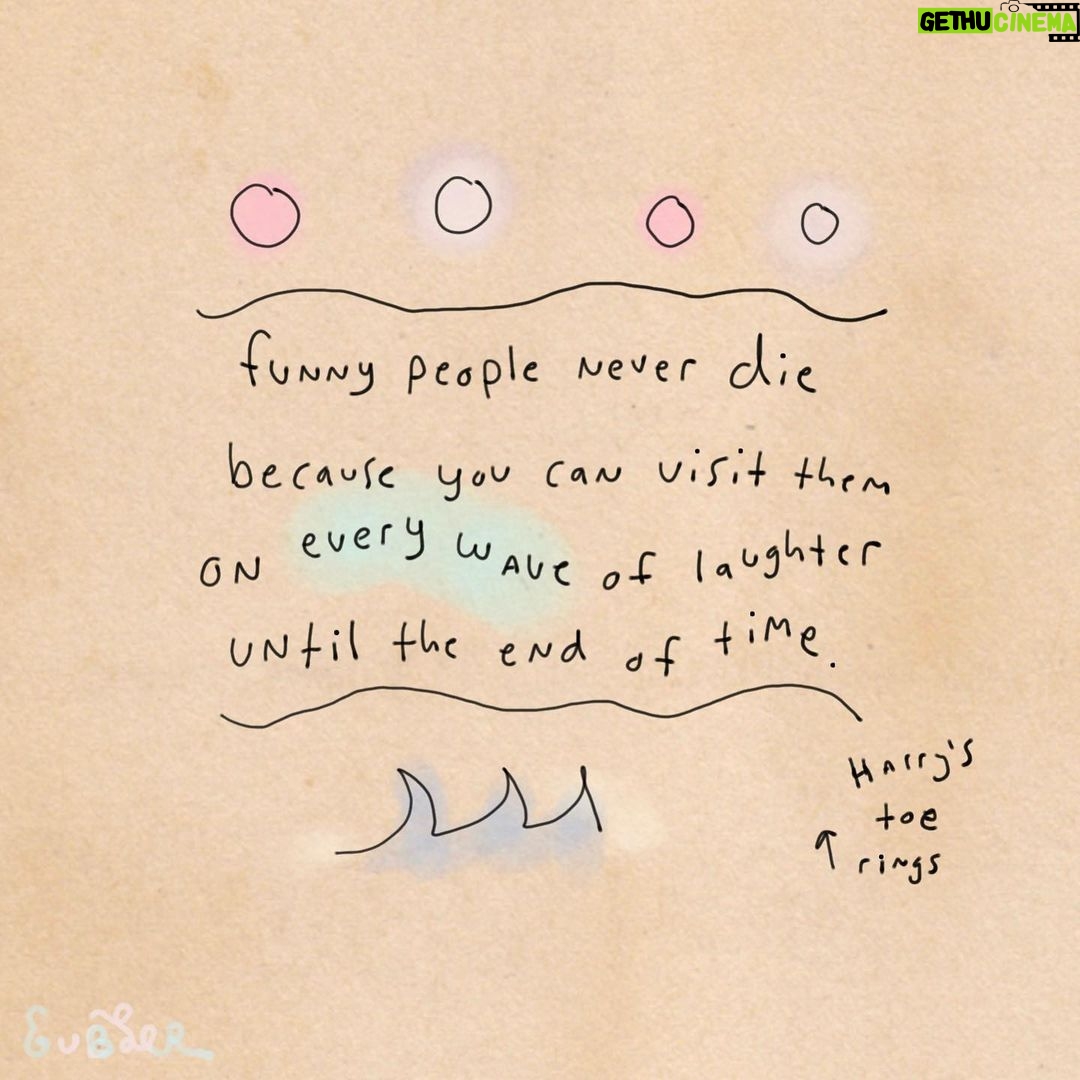 GETHUCINEMA
funny people never die
because you can visit them
on every wave of laughter
until the end of time.
Harry's
toe
↑ rings
GUBLER